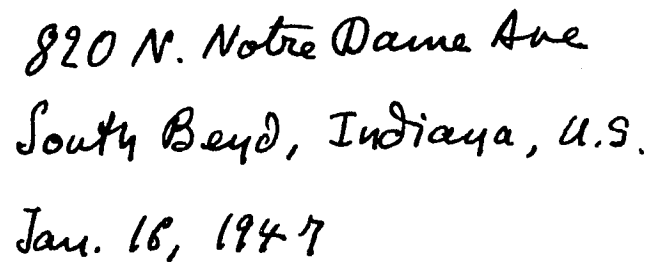 820 N. Notre Dame Ave
South Bend, Indiana, U.S.
Jan. 16, 1947